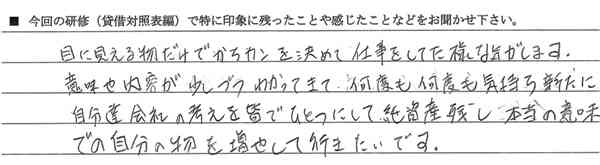 ■ 今回の研修（貸借対照表編）で特に印象に残ったことや感じたことなどをお聞かせ下さい。
目に見える物だけでかちカンを決めて仕事をしてた様な気がします．
意味や内容が少しづつわかってきて．何度も何度も気持ち新たに
自分達会社の考えを皆でひとつにして純資産残し本当の意味
での自分の物を増やして行きたいです．